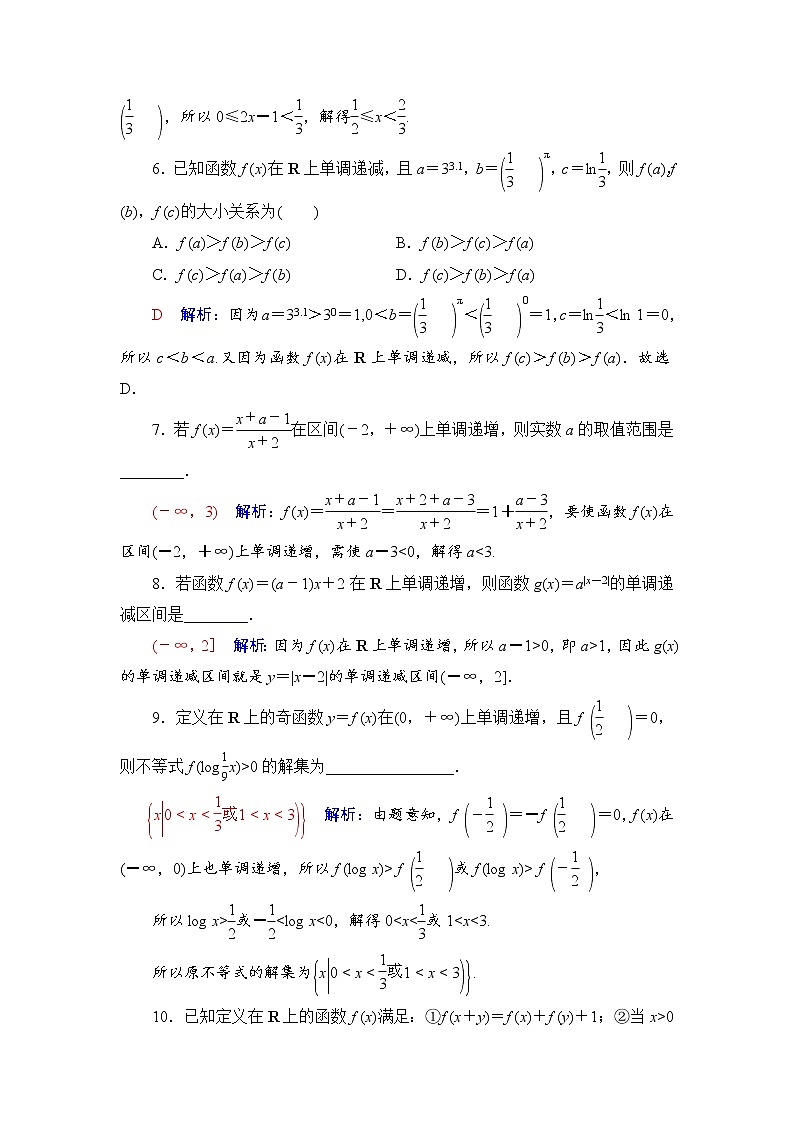 (1/3),所以 0≤2x-1<1/3,解得1/2≤x<2/3.
6.已知函数 f (x)在 R 上单调递减,且 a=3^3.1,b=(1/3)^π,c=ln1/3,则 f (a),f
(b),f (c)的大小关系为(  )
A.f (a)>f (b)>f (c)  B.f (b)>f (c)>f (a)
C.f (c)>f (a)>f (b)  D.f (c)>f (b)>f (a)
D 解析:因为a=3^3.1>3^0=1,0<b=(1/3)^π<(1/3)^0=1,c=ln1/3<ln 1=0,
所以 c<b<a.又因为函数 f (x)在 R 上单调递减,所以 f (c)>f (b)>f (a).故选
D.
7.若 f (x)=(x+a-1)/(x+2)在区间(-2,+∞)上单调递增,则实数 a 的取值范围是
________.
(-∞,3) 解析:f (x)=(x+a-1)/(x+2)=(x+2+a-3)/(x+2)=1+(a-3)/(x+2),要使函数 f (x)在
区间(-2,+∞)上单调递增,需使 a-3<0,解得 a<3.
8.若函数 f (x)=(a-1)x+2 在 R 上单调递增,则函数 g(x)=a^|x-2|的单调递
减区间是________.
(-∞,2] 解析:因为 f (x)在 R 上单调递增,所以 a-1>0,即 a>1,因此 g(x)
的单调递减区间就是 y=|x-2|的单调递减区间(-∞,2].
9.定义在 R 上的奇函数 y=f (x)在(0,+∞)上单调递增,且 f (1/2)=0,
则不等式 f (log1/9x)>0 的解集为________________.
{x|0<x<1/3或1<x<3} 解析:由题意知,f (-1/2)=-f (1/2)=0,f (x)在
(-∞,0)上也单调递增,所以 f (log x)> f (1/2)或 f (log x)> f (-1/2),
所以 log x>1/2或-1/2<log x<0,解得 0<x<1/3或 1<x<3.
所以原不等式的解集为{x|0<x<1/3或1<x<3}.
10.已知定义在 R 上的函数 f (x)满足:①f (x+y)=f (x)+f (y)+1;②当 x>0